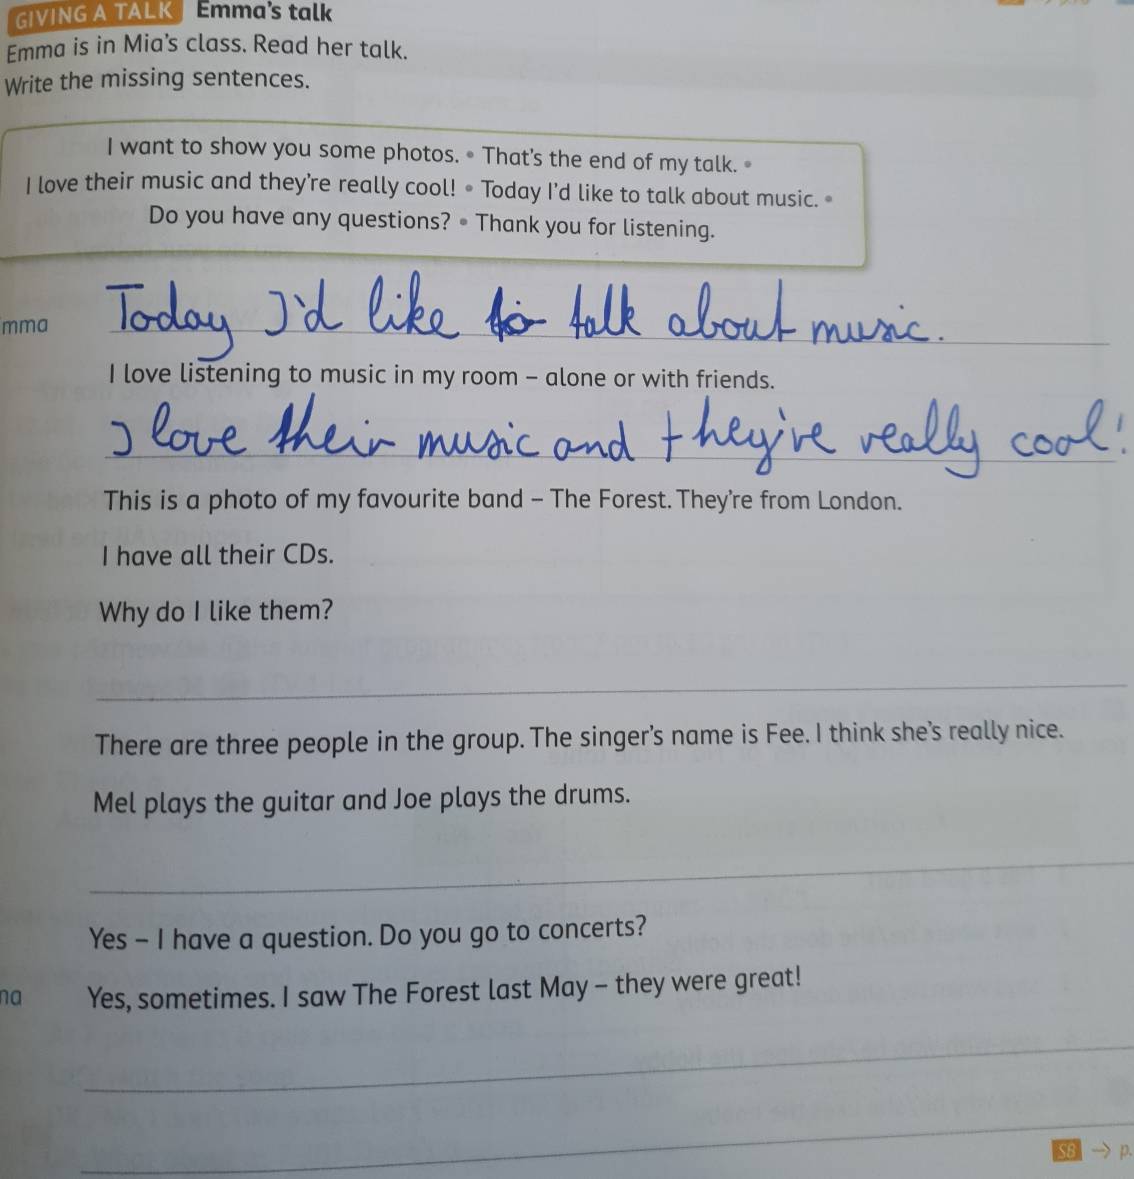 GIVING A TALK Emma's talk
Emma is in Mia's class. Read her talk.
Write the missing sentences.
I want to show you some photos. • That's the end of my talk. •
I love their music and they're really cool! • Today I'd like to talk about music. •
Do you have any questions? • Thank you for listening.
mma Today I'd like to talk about music.
I love listening to music in my room – alone or with friends.
I love their music and they're really cool!
This is a photo of my favourite band – The Forest. They're from London.
I have all their CDs.
Why do I like them?
There are three people in the group. The singer's name is Fee. I think she's really nice.
Mel plays the guitar and Joe plays the drums.
Yes – I have a question. Do you go to concerts?
na Yes, sometimes. I saw The Forest last May – they were great!
S8 → p.